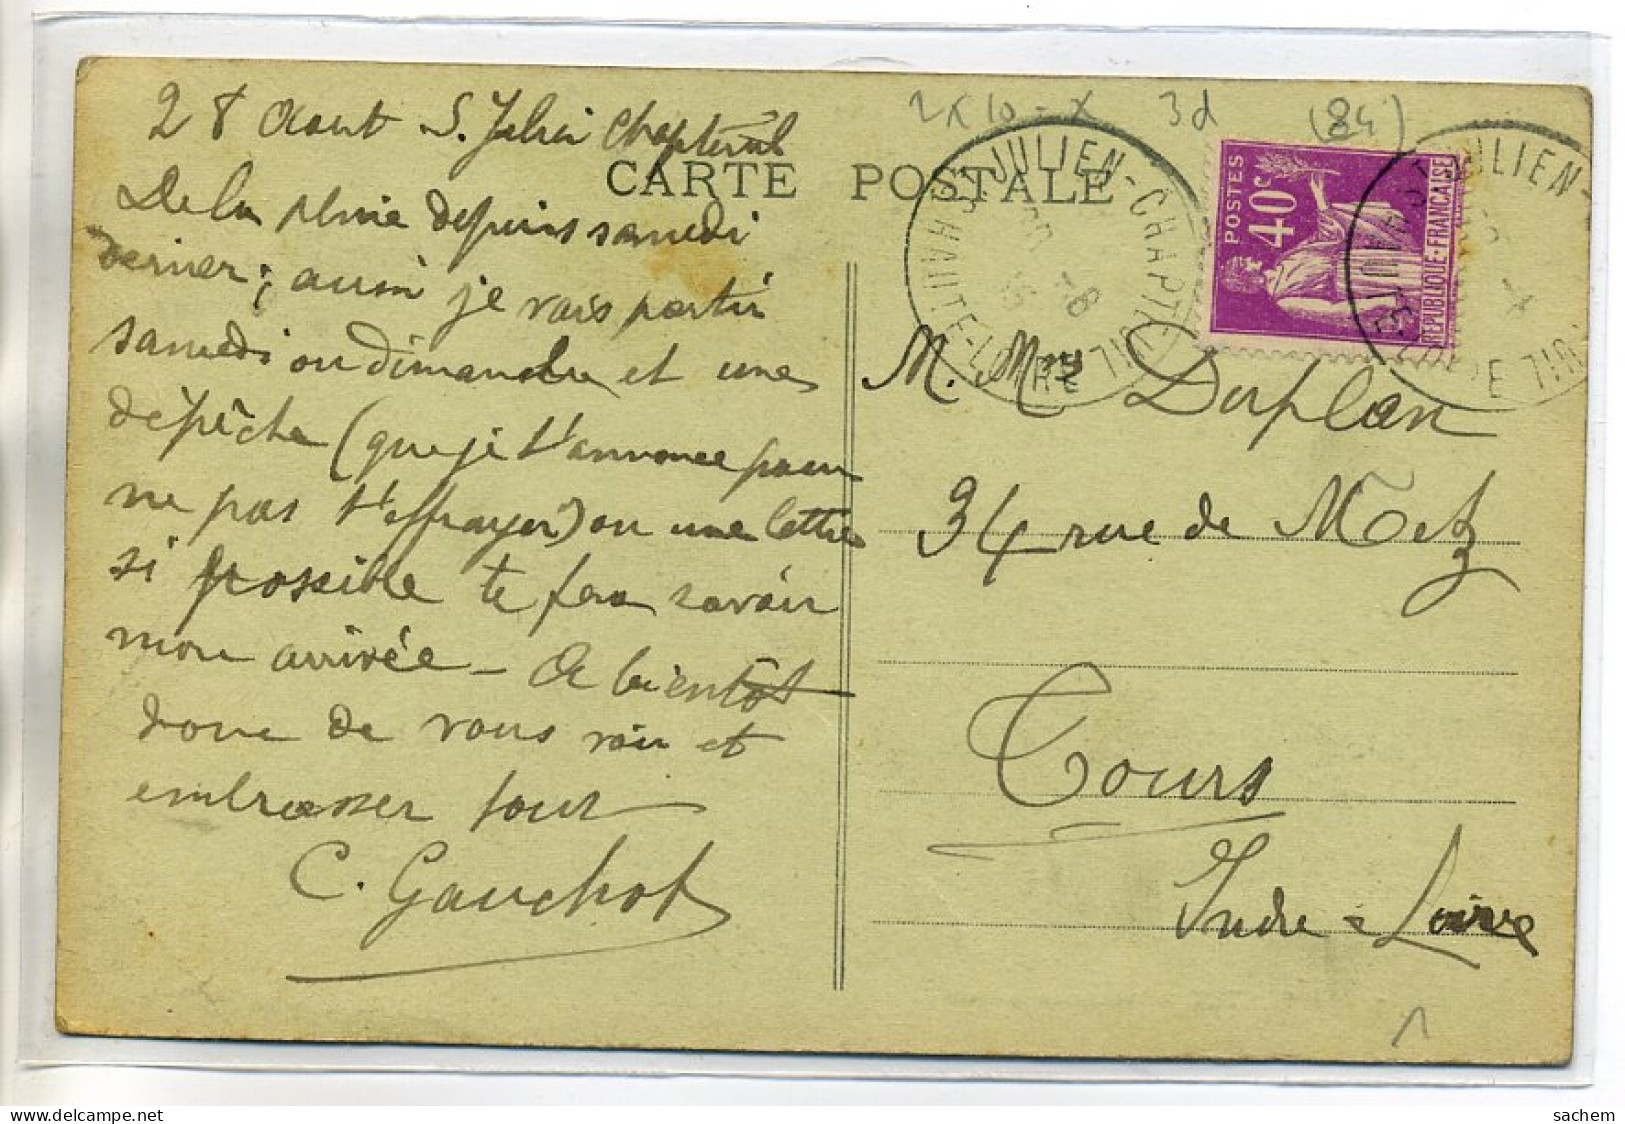 28 Aout S. Julien Chapteuil
De la pluie depuis samedi
dernier; aussi je vais partir
samedi ou dimanche et une
dépêche (que je t'annonce pour
ne pas t'effrayer) ou une lettre
si possible te fera savoir
mon arrivée - A bientôt
donc de vous voir et
embrasser tous
C. Gauchot
CARTE POSTALE
3d
(84)
ST JULIEN-CHAPTEUIL
HAUTE-LOIRE
POSTES
40c
REPUBLIQUE-FRANÇAISE
M. Mme Duplan
34 rue de Metz
Tours
Indre & Loire
1
sachem